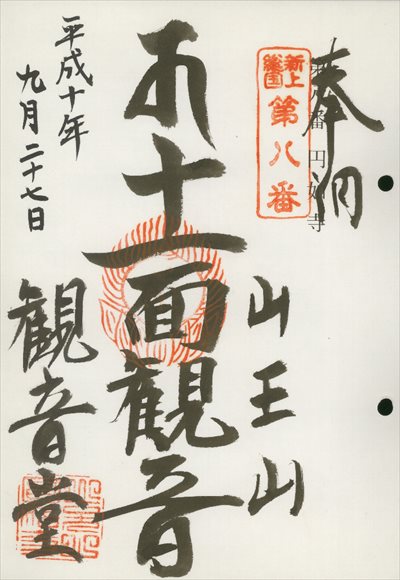 奉
第八番 円妙寺
新上
総国
第八番
山王山
十一面観音
観音堂
平成十年
九月二十七日